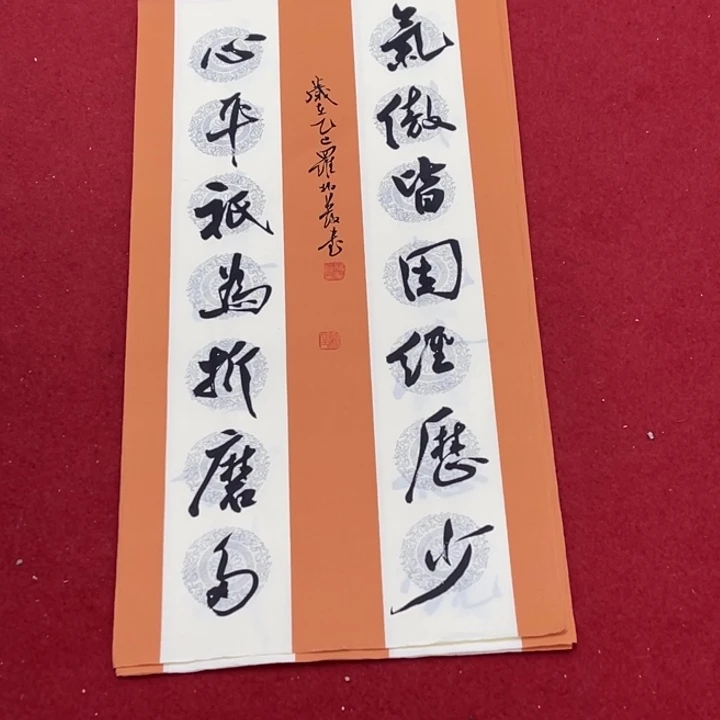 氣傲皆因經歷少
心平祇為折磨多
歲在乙巳羅 書